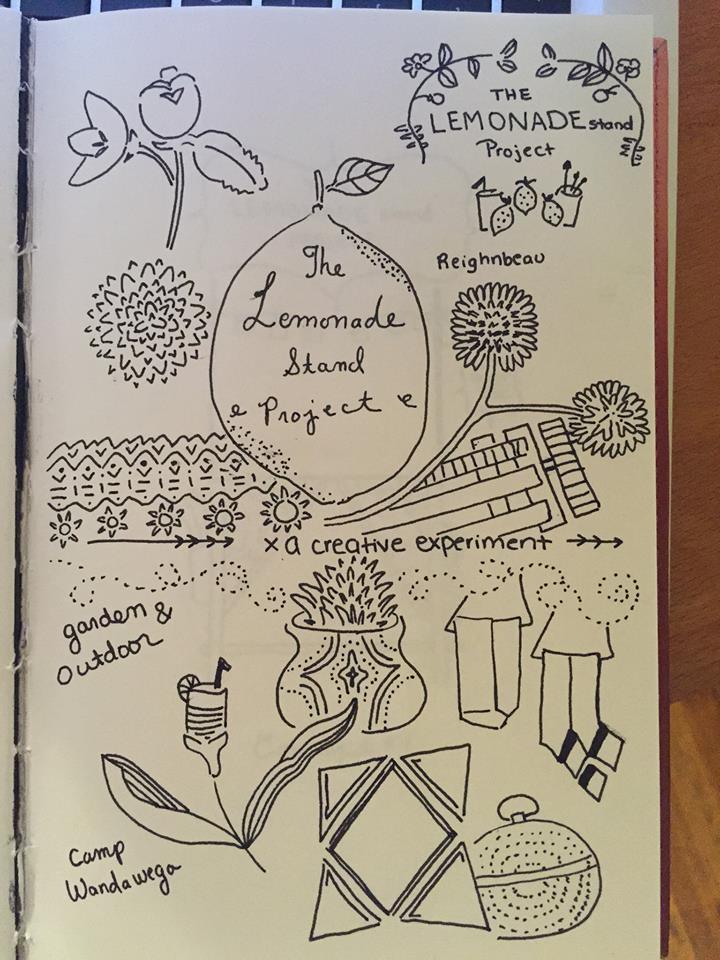 THE
LEMONADE stand
Project
The
Lemonade
Stand
Project
Reighnbeau
x a creative experiment
garden &
outdoor
Camp
Wandawega